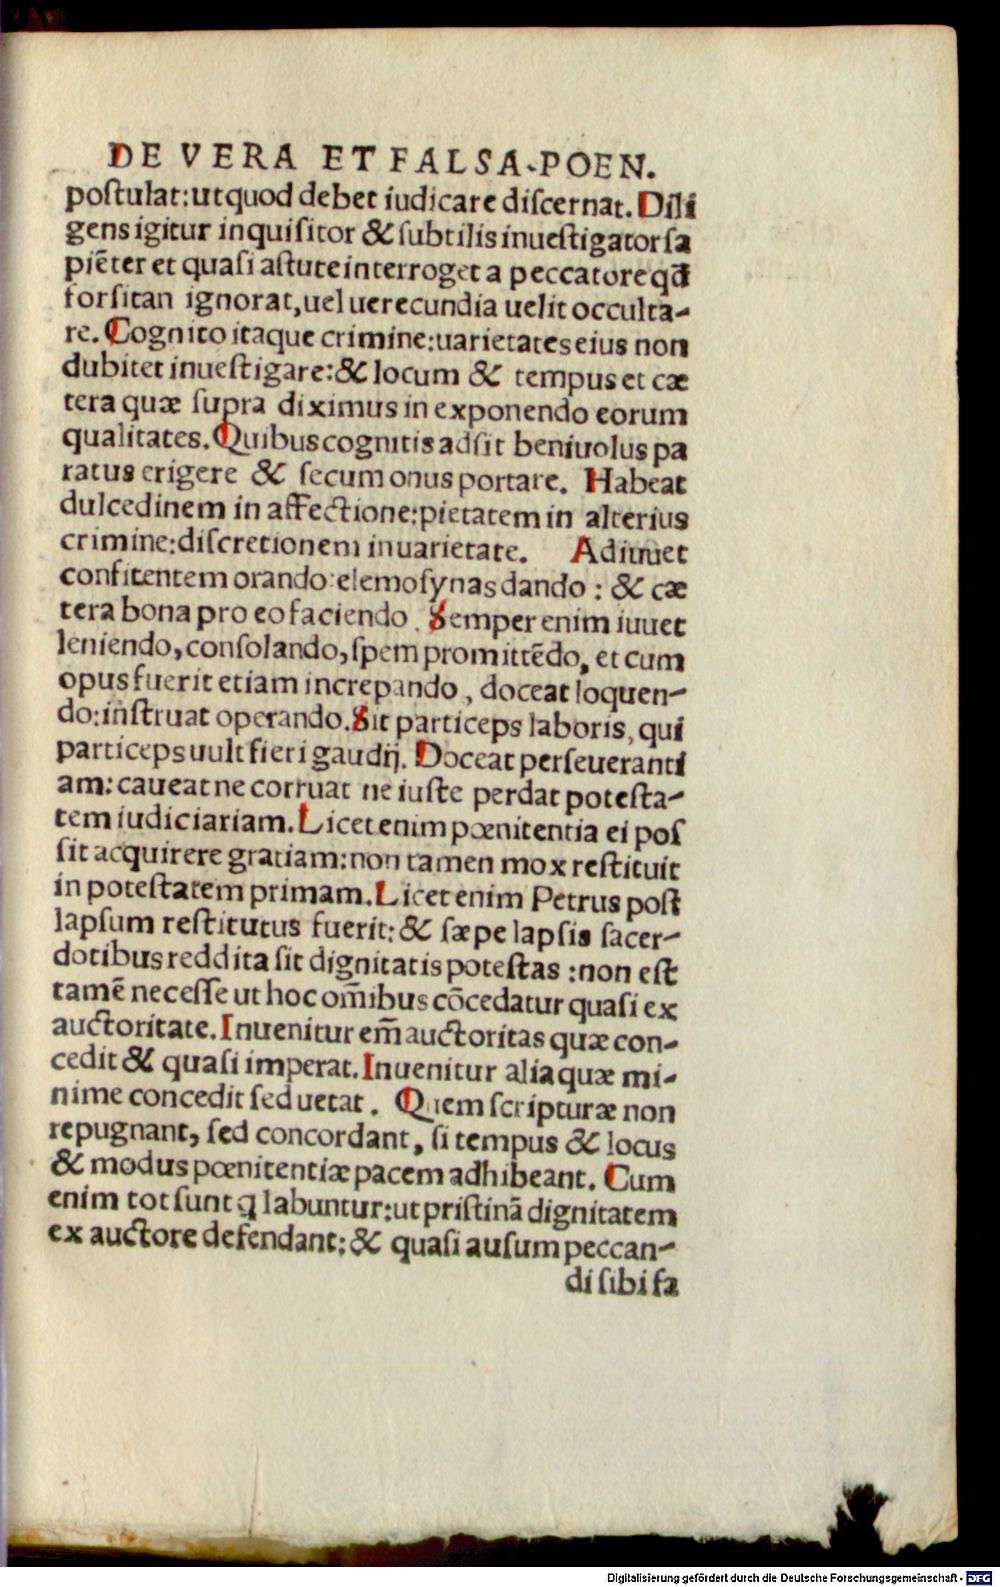 DE VERA ET FALSA POEN.
postulat: ut quod debet iudicare discernat. Dili
gens igitur inquisitor & subtilis inuestigator sa
piēter et quasi astute interroget a peccatore qđ
forsitan ignorat, uel uerecundia uelit occulta-
re. Cognito itaque crimine: uarietates eius non
dubitet inuestigare: & locum & tempus et cæ
tera quæ supra diximus in exponendo eorum
qualitates. Quibus cognitis adsit beniuolus pa
ratus erigere & secum onus portare. Habeat
dulcedinem in affectione: pietatem in alterius
crimine: discretionem in uarietate. Adiuuet
confitentem orando: elemosynas dando: & cæ
tera bona pro eo faciendo. Semper enim iuuet
leniendo, consolando, spem promittēdo, et cum
opus fuerit etiam increpando, doceat loquen-
do: instruat operando. Sit particeps laboris, qui
particeps uult fieri gaudij. Doceat perseueranti
am: caueat ne corruat ne iuste perdat potesta-
tem iudiciariam. Licet enim pœnitentia ei pos
sit acquirere gratiam: non tamen mox restituit
in potestatem primam. Licet enim Petrus post
lapsum restitutus fuerit: & sæpe lapsis sacer-
dotibus reddita sit dignitatis potestas: non est
tamē necesse ut hoc om̄ibus cōcedatur quasi ex
auctoritate. Inuenitur em̄ auctoritas quæ con-
cedit & quasi imperat. Inuenitur alia quæ mi-
nime concedit sed uetat. Quem scripturæ non
repugnant, sed concordant, si tempus & locus
& modus pœnitentiæ pacem adhibeant. Cum
enim tot sunt q labuntur: ut pristinā dignitatem
ex auctore defendant: & quasi ausum peccan-
di sibi fa
Digitalisierung gefördert durch die Deutsche Forschungsgemeinschaft - DFG